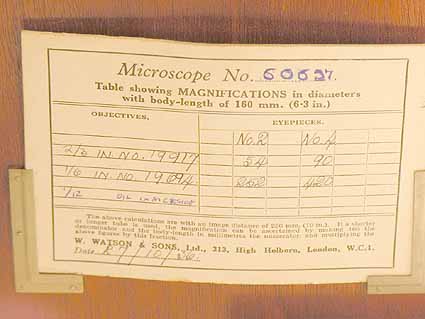 Microscope No. 60627.
Table showing MAGNIFICATIONS in diameters
with body-length of 160 mm. (6·3 in.)
OBJECTIVES. EYEPIECES.
No. 2 No. 4
2/3 IN. NO. 19917 54 90
1/6 IN. NO. 19694 252 420
1/12 OIL IMMERSION
The above calculations are with an image distance of 250 mm. (10 in.). If a shorter
or longer tube is used, the magnification can be ascertained by making 160 the
denominator and the body-length in millimetres the numerator, and multiplying the
above figures by this fraction.
W. WATSON & SONS, Ltd., 313, High Holborn, London, W.C.1.
Date 7/10/36.